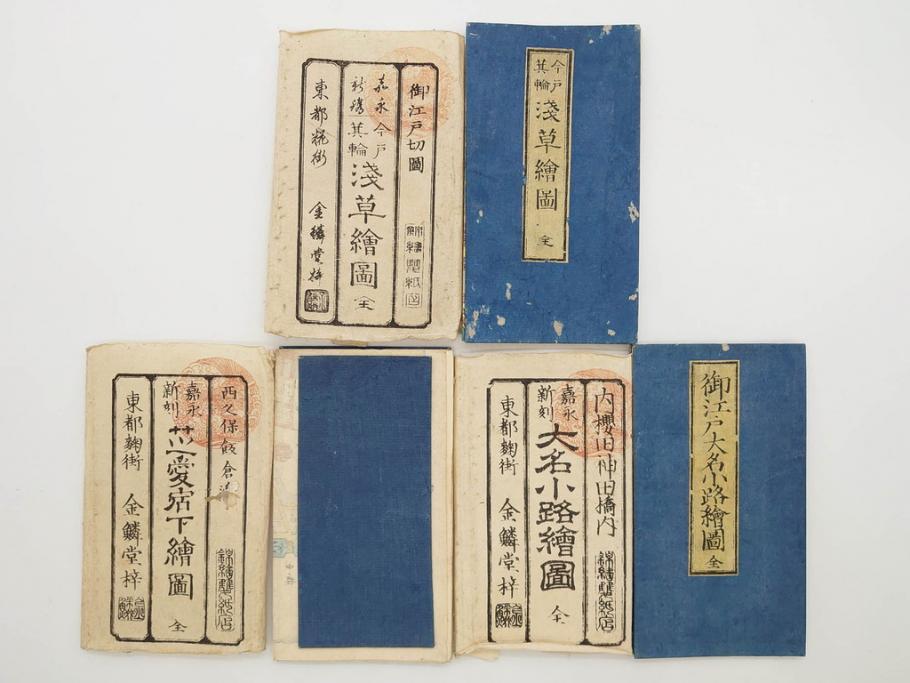 御江戸切圖
嘉永
新鐫
今戸
箕輪
淺草繪圖
全
東都麹街
金鱗堂梓
今戸
箕輪
淺草繪圖
全
西久保飯倉邊
嘉永
新刻
芝愛宕下繪圖
全
東都麴街
金鱗堂梓
内櫻田神田橋内
嘉永
新刻
大名小路繪圖
全
東都麴街
金鱗堂梓
御江戸大名小路繪圖
全